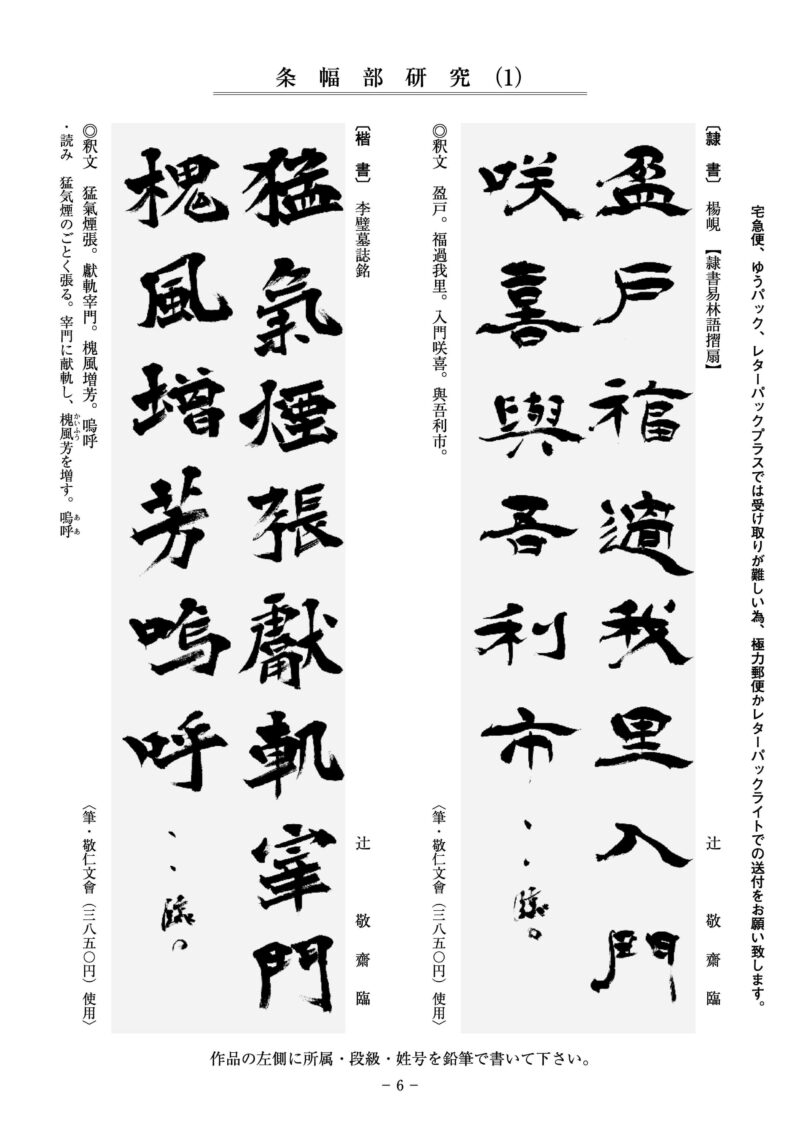 条幅部研究 (1)
宅急便、ゆうパック、レターパックプラスでは受け取りが難しい為、極力郵便かレターパックライトでの送付をお願い致します。
〔隷書〕 楊峴 【隷書易林語摺扇】 辻敬齋臨
盈戸福過我里入門
咲喜與吾利市、、臨。
◎釈文 盈戸。福過我里。入門咲喜。與吾利市。 〈筆・敬仁文會(三八五〇円)使用〉
〔楷書〕 李璧墓誌銘 辻敬齋臨
猛氣煙張獻軌宰門
槐風増芳嗚呼、、臨。
◎釈文 猛氣煙張。獻軌宰門。槐風増芳。嗚呼 〈筆・敬仁文會(三八五〇円)使用〉
・読み 猛気煙のごとく張る。宰門に献軌し、槐風芳を増す。嗚呼
かいふう
ああ
作品の左側に所属・段級・姓号を鉛筆で書いて下さい。
− 6 −